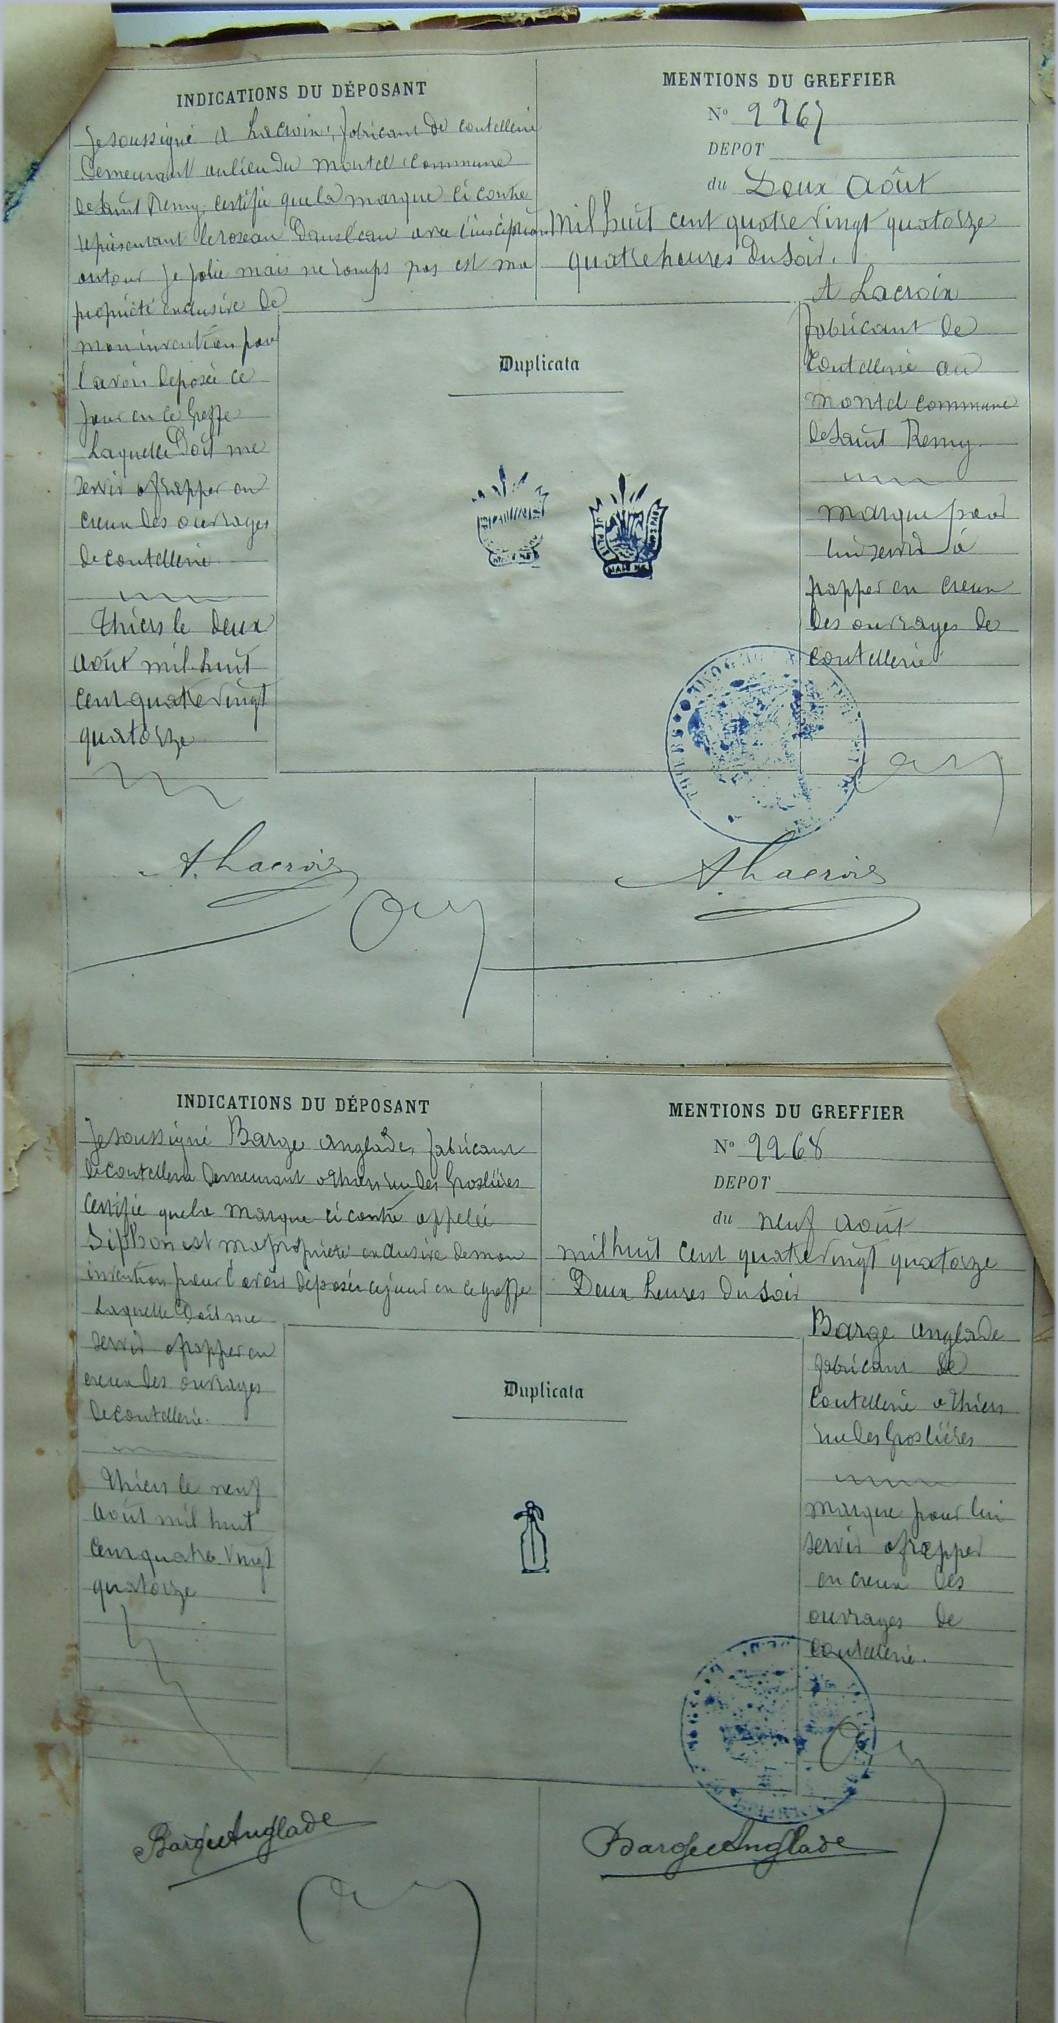 INDICATIONS DU DÉPOSANT
Je soussigné A Lacroix, fabricant de coutellerie
Demeurant au lieu du Montel commune
de Saint Remy, certifie que la marque ci contre
représentant le roseau dans l'eau avec l'inscription
autour je plie mais ne romps pas est ma
propriété exclusive de
mon invention pour
l'avoir déposée ce
jour en ce Greffe
Laquelle Doit me
servir a frapper en
creux des ouvrages
de coutellerie
Thiers le deux
août mil huit
cent quatre vingt
quatorze
MENTIONS DU GREFFIER
N° 2267
DEPOT
du Deux Août
mil huit cent quatre vingt quatorze
quatre heures du soir.
A Lacroix
fabricant de
Coutellerie au
montel commune
de Saint Remy
marque pour
lui servir à
frapper en creux
des ouvrages de
coutellerie
Duplicata
THIERS
A. Lacroix
A Lacroix
INDICATIONS DU DÉPOSANT
Je soussigné Barge Anglade, fabricant
de coutellerie Demeurant a Thiers rue des Groslières
Certifie que la marque ci contre appelée
Siphon est ma propriété exclusive de mon
invention pour l'avoir déposée ce jour en ce greffe
Laquelle Doit me
servir a frapper en
creux des ouvrages
de coutellerie.
Thiers le neuf
août mil huit
cent quatre vingt
quatorze
MENTIONS DU GREFFIER
N° 2268
DEPOT
du neuf août
mil huit cent quatre vingt quatorze
Deux heures du soir
Barge Anglade
fabricant de
Coutellerie a Thiers
rue des Groslières
marque pour lui
servir a frapper
en creux des
ouvrages de
coutellerie.
Duplicata
Barge Anglade
Barge Anglade